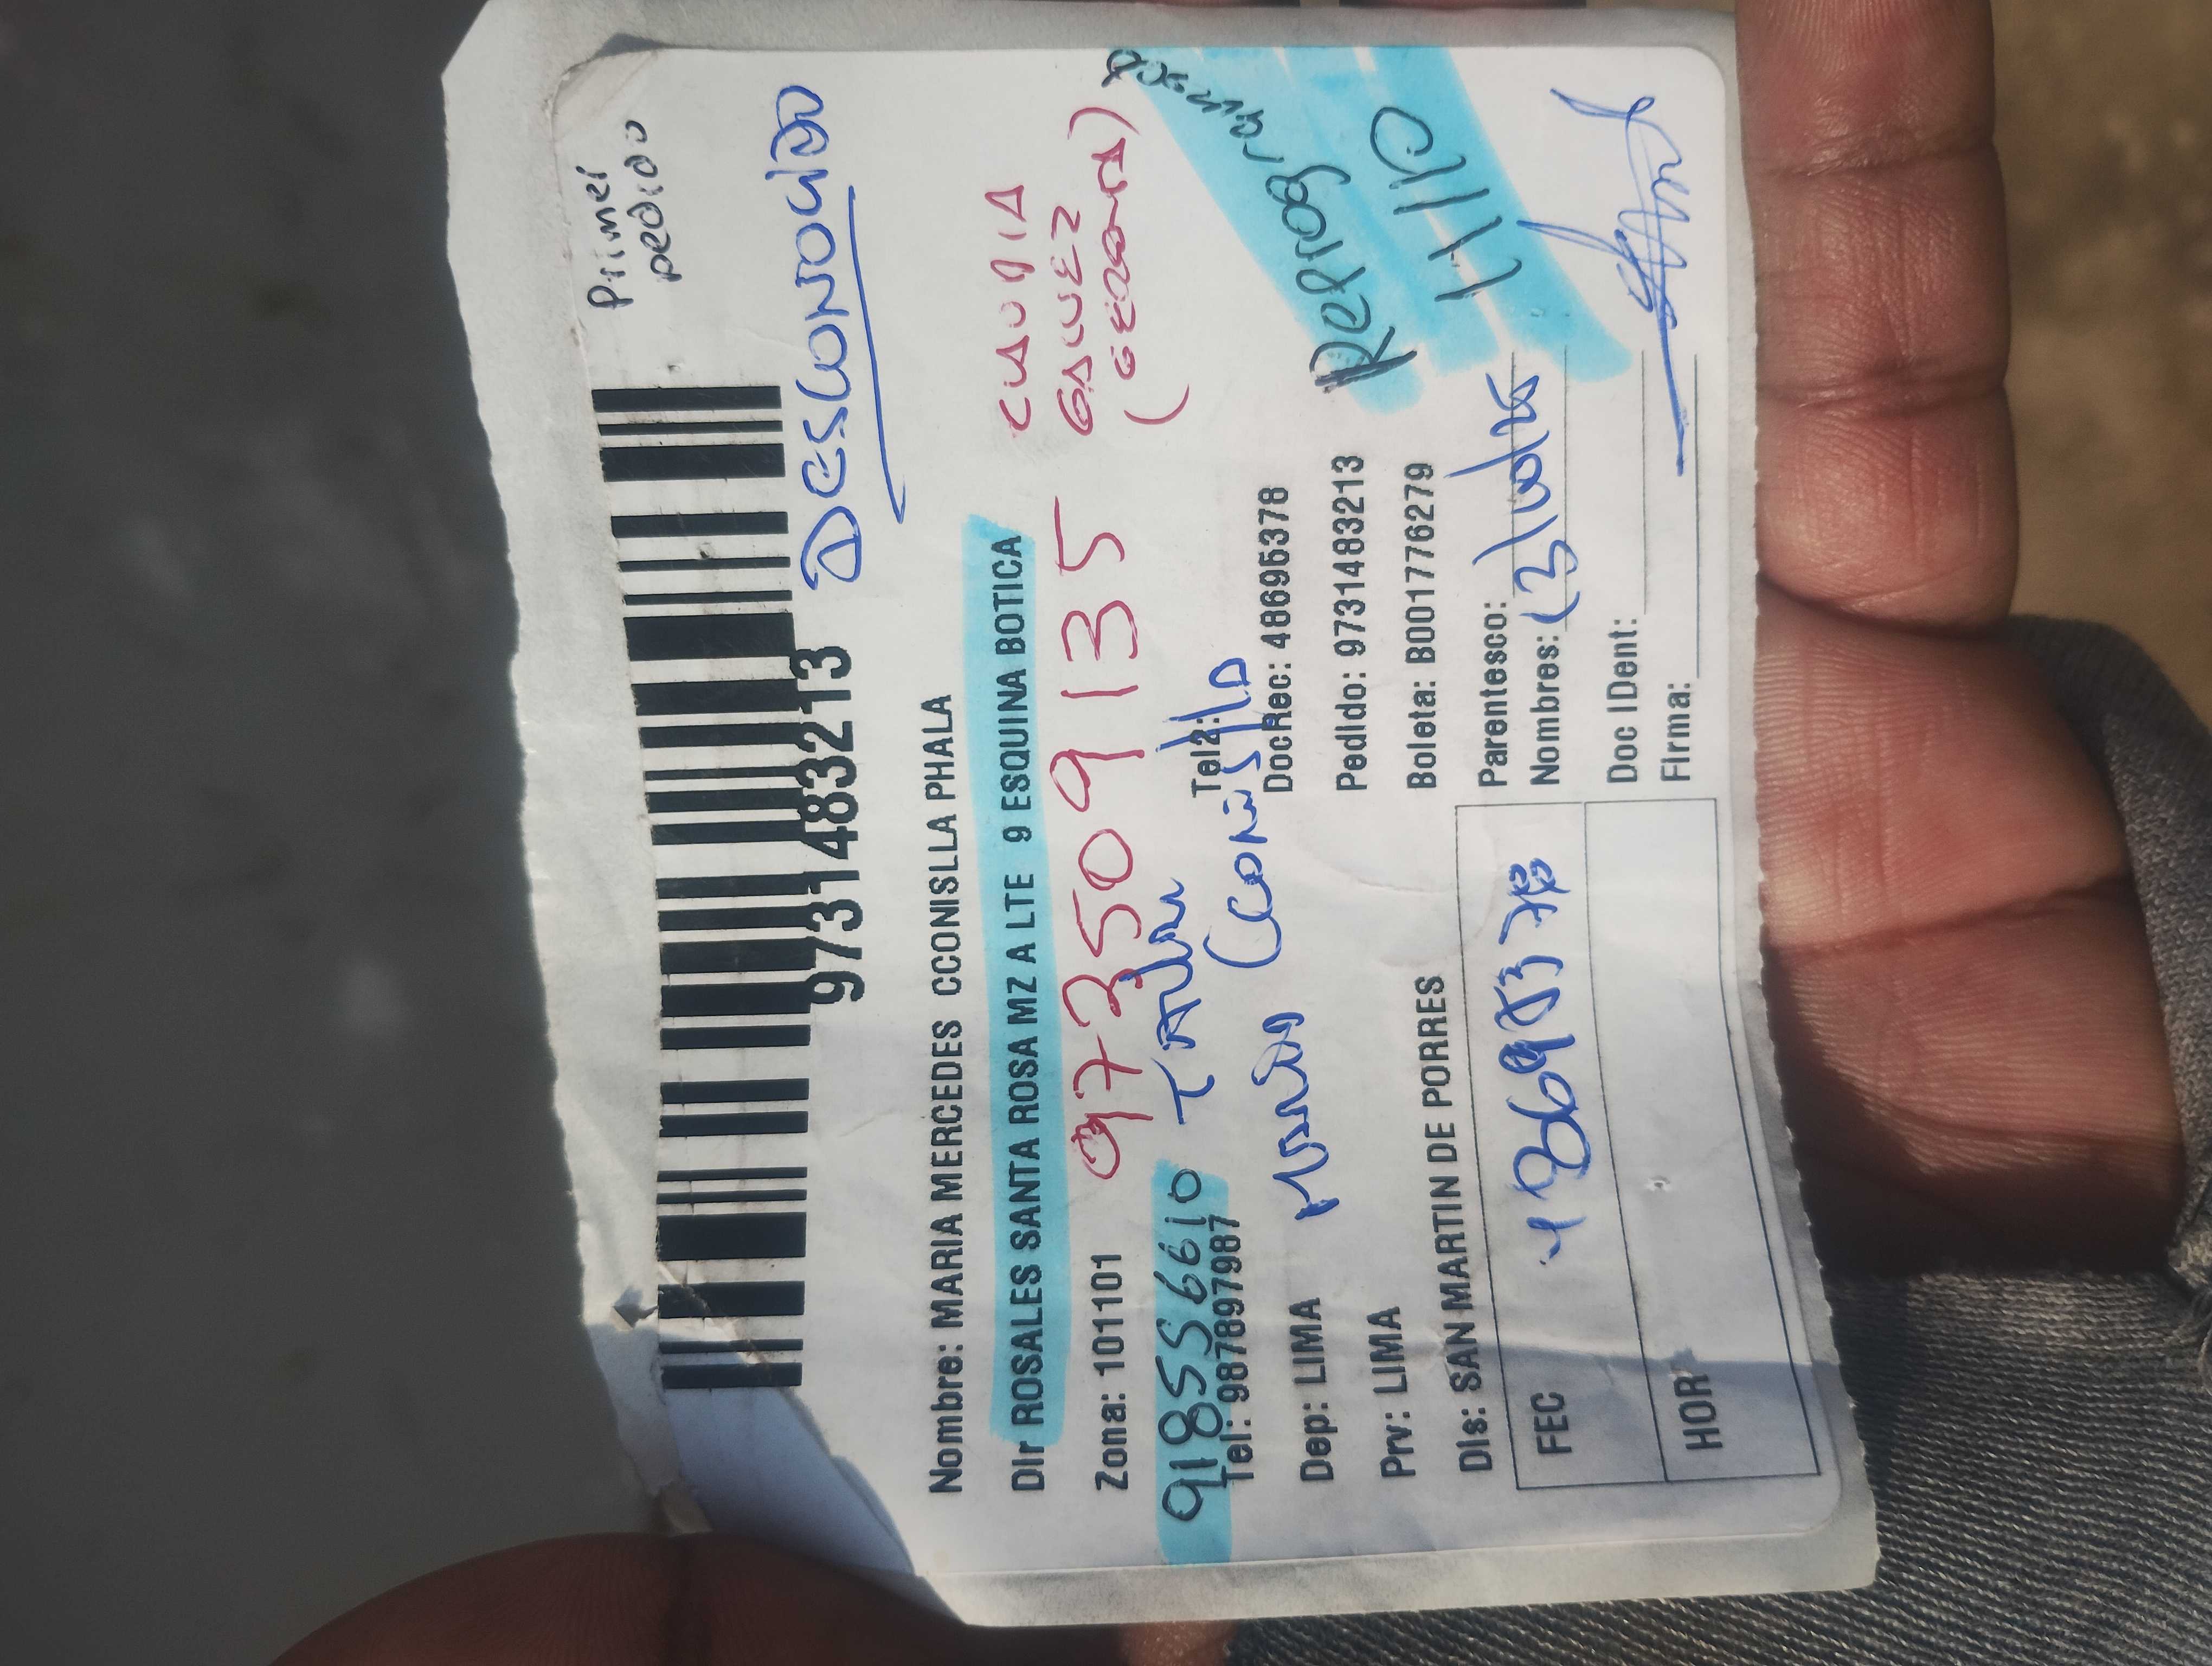 Primer
pedido
9731483213
DESCONOCIDO
Nombre: MARIA MERCEDES CCONISLLA PHALA
Dir ROSALES SANTA ROSA MZ A LTE 9 ESQUINA BOTICA
CLAUDIA
GALVEZ
973509135
Zona: 101101
918556610
Tel: 987897987
Tel2:
DocRec: 48695378
Reprog
11/10
Dep: LIMA
Pedido: 9731483213
Prv: LIMA
Boleta: B001776279
Dis: SAN MARTIN DE PORRES
Parentesco:
Nombres:
FEC
48695378
Doc IDent:
HOR
Firma: